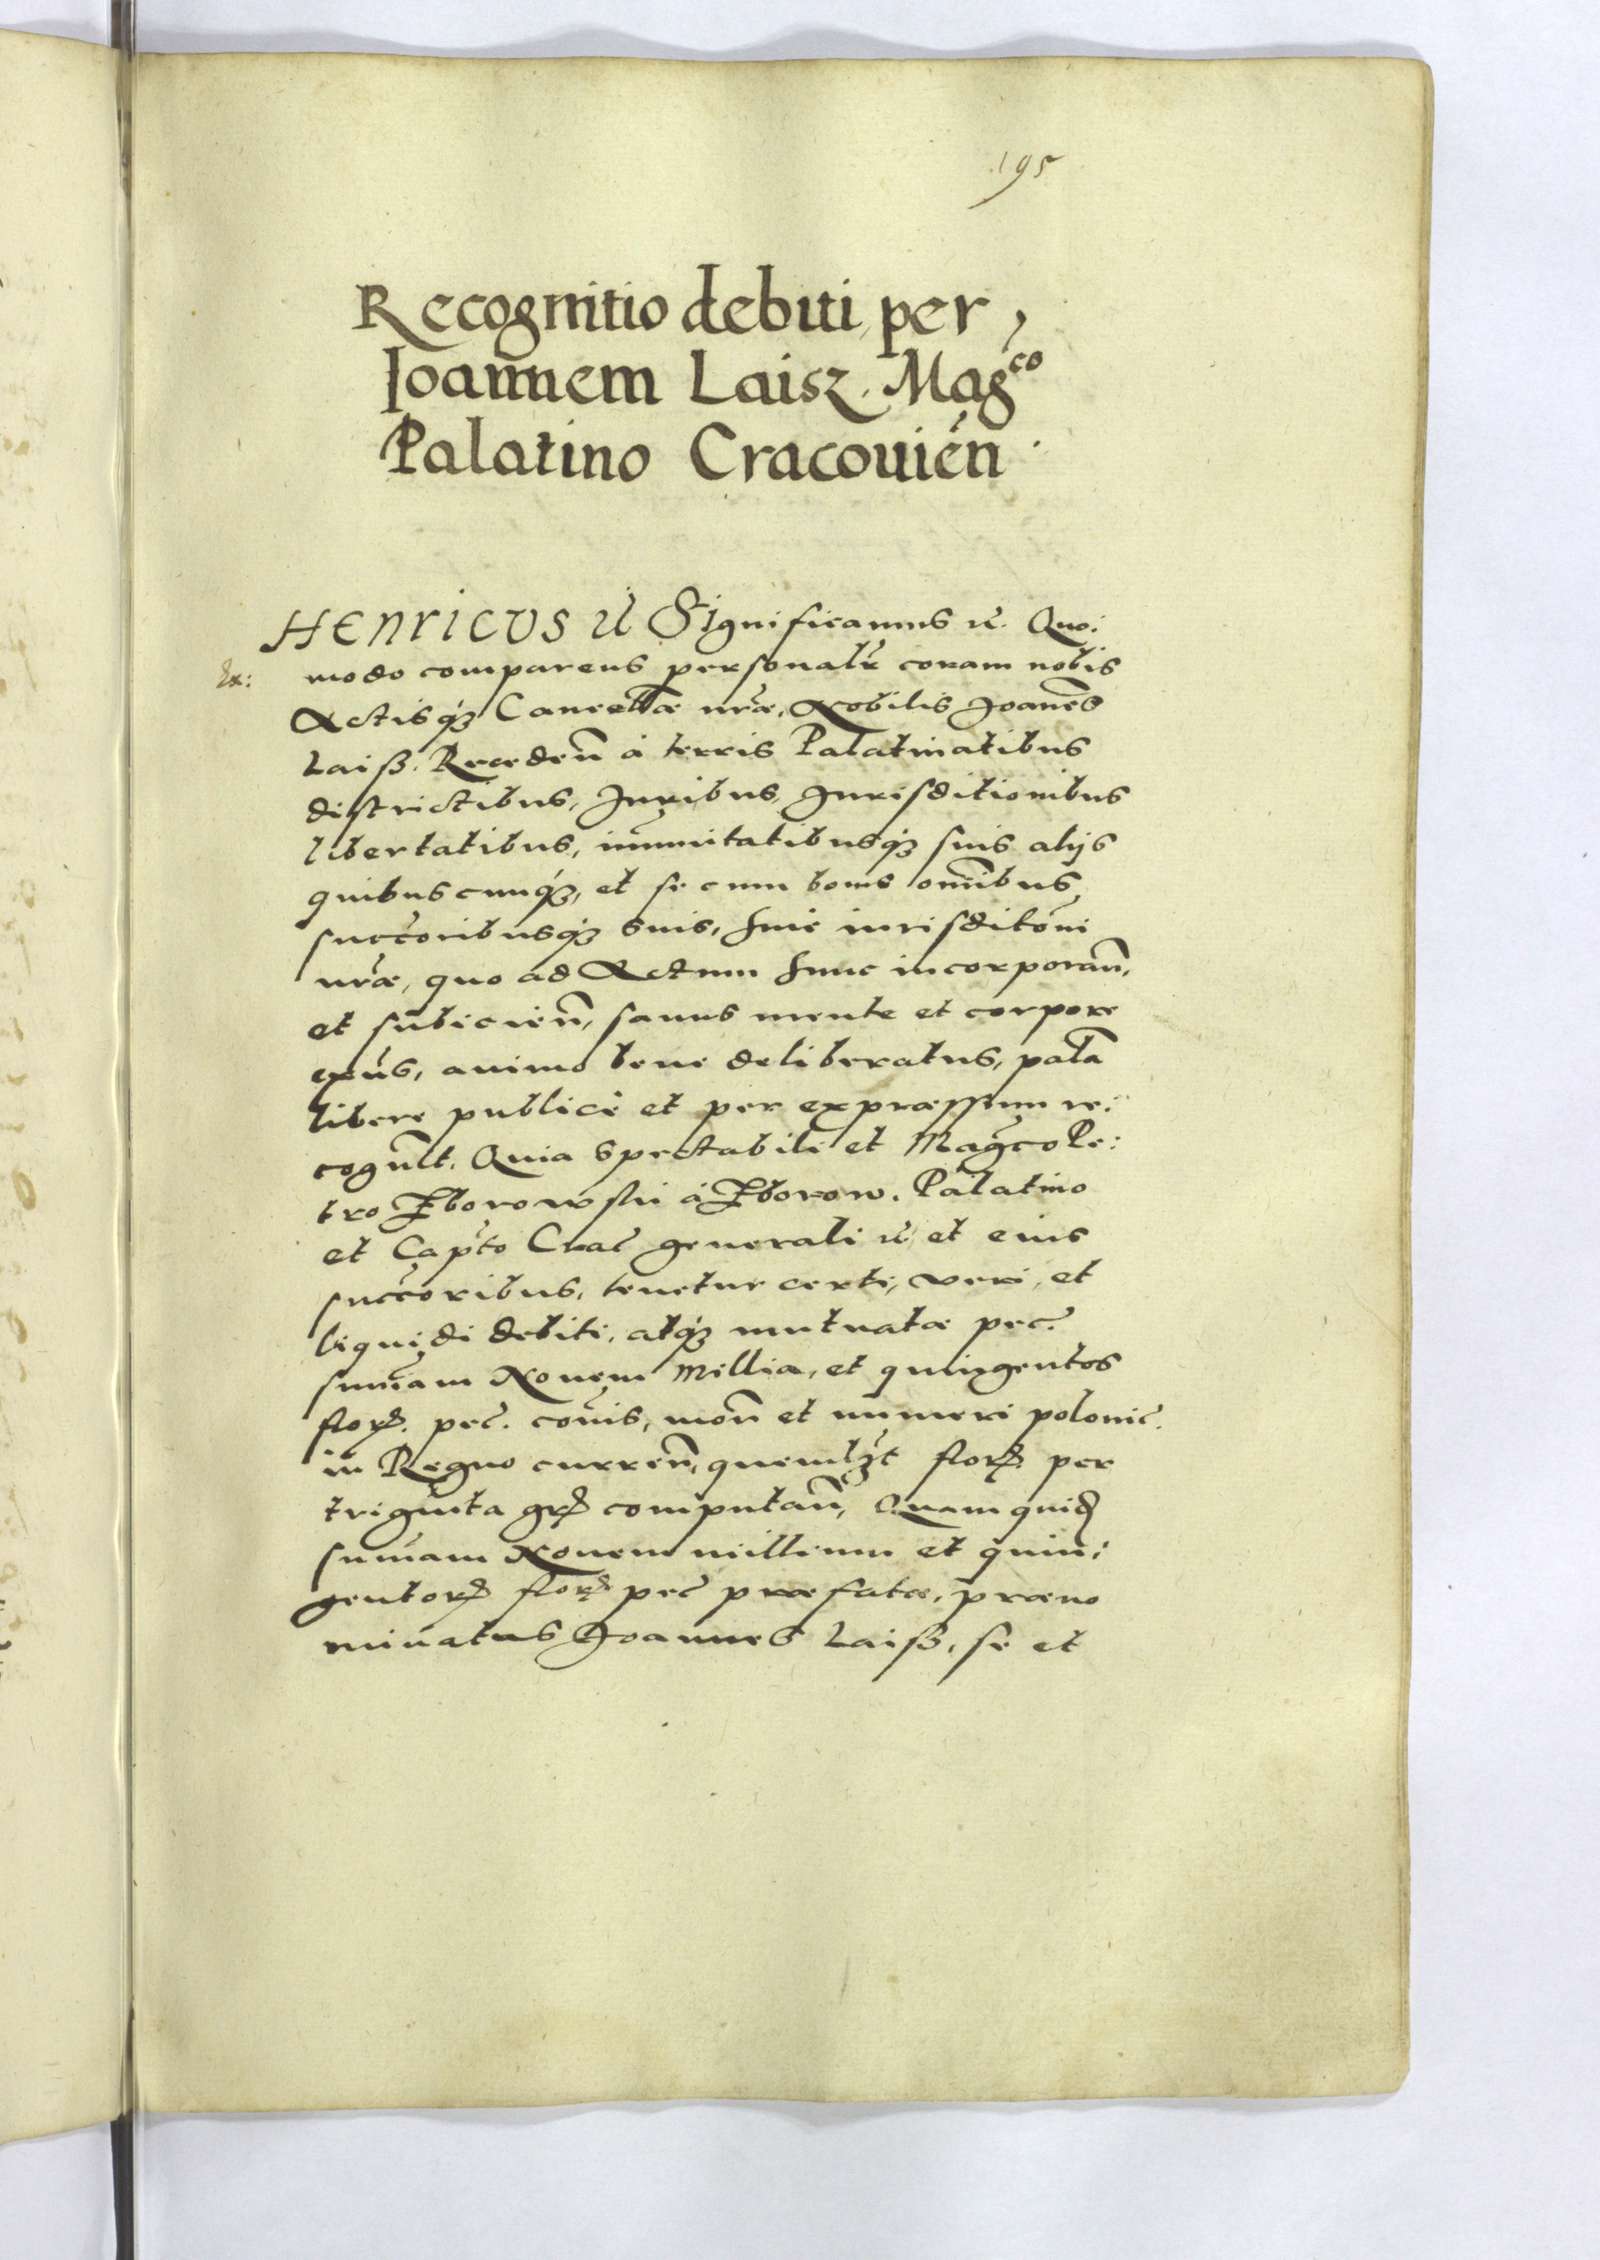 195
Recognitio debiti per
Ioannem Laisz Mag.co
Palatino Cracovien̄
Henricus rc̄ Significamus rc̄. Quo:
Ex: modo comparens personalr̄ coram nobis
Actisq́ꝫ Cancell̄æ nr̄æ, Nobilis Joanēs
Laisz. Recedeñ à terris Palatinatibus
districtibus, Juribus, Jurisditionibus
libertatibus, im̄unitatibusq́ꝫ suis alijs
quibuscunq́ꝫ, et se cum bonis om̄ibus
succ̄oribusq́ꝫ suis, huic iurisditōni
nr̄æ, quo ad Actum hunc incorporan̄,
et subicien̄, sanus mente et corpore
exn̄s, animo bene deliberatus, palā
libere publicè et per expræssum re:
cogn̄lt. Quia Spectabili et Maḡco Pe:
tro Zborowski à Zborow. Palatino
et Cap̄to Crac̄ generali rc̄ et eius
succ̄oribus, tenetur certi, veri, et
liquidi debiti, atq́ꝫ mutuatæ pec̄.
sum̄am Novem Millia, et quingentos
florꝝ. pec̄. cōis, mon̄ et numeri polonic̄.
in Regno curren̄, quemlꝫt florꝝ per
triginta grꝝ computan̄, Quam quiꝺ
sum̄am Novem millium et quin:
gentorꝝ florꝝ pec̄ præfatæ, præno
minatus Joannes Laisz, se et